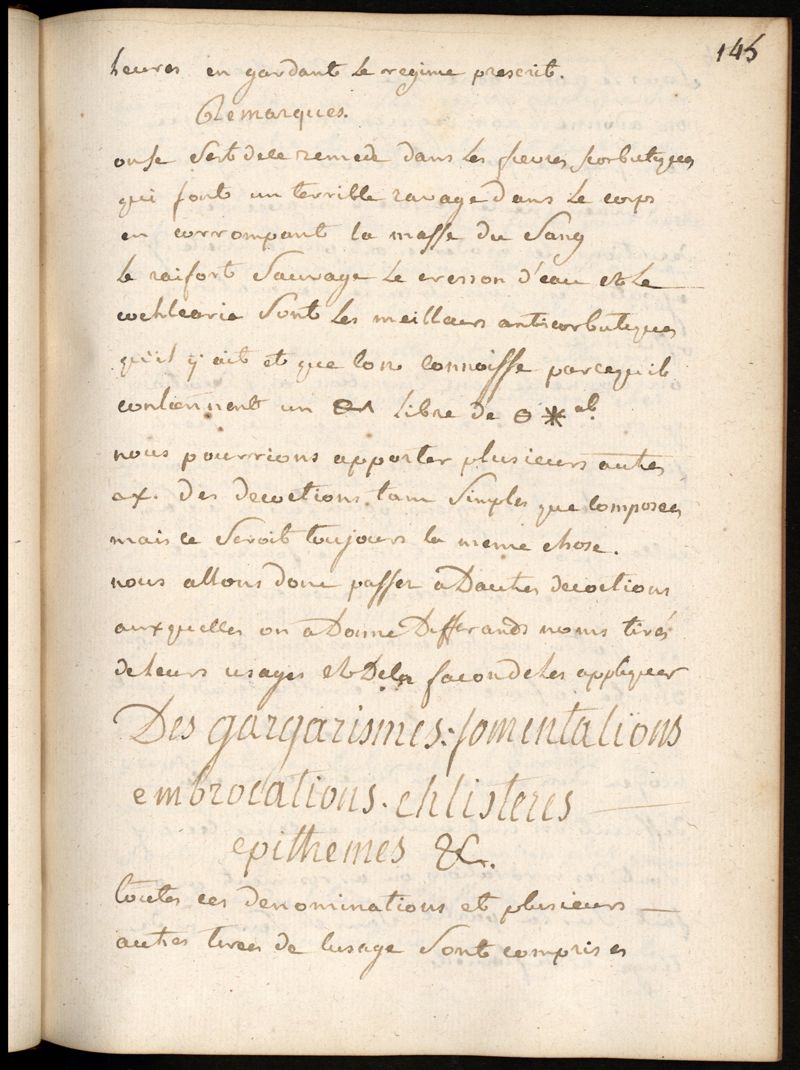 145
heures en gardant le regime prescrit.
Remarques.
on se sert de ce remede dans les fievres scorbutiques
qui font un terrible ravage dans le corps
en corrompant la masse du sang
le raifort sauvage le cresson d'eau et le
cochlearia sont les meilleurs antiscorbutiques
qu'il y ait et que lon connoisse parcequ'il
contiennent un libre de
nous pourrions apporter plusieurs autres
ex. des decoctions tam simples que composees
mais ce seroit toujours la meme chose.
nous allons donc passer a Dautres decoctions
auxquelles on a Donne Differands noms tirés
de leurs usages et De la facon de les appliquer
Des gargarismes. fomentations
embrocations. chlisteres
epithemes &c.
toutes ces denominations et plusieurs
autres tirees de lusage sont comprises